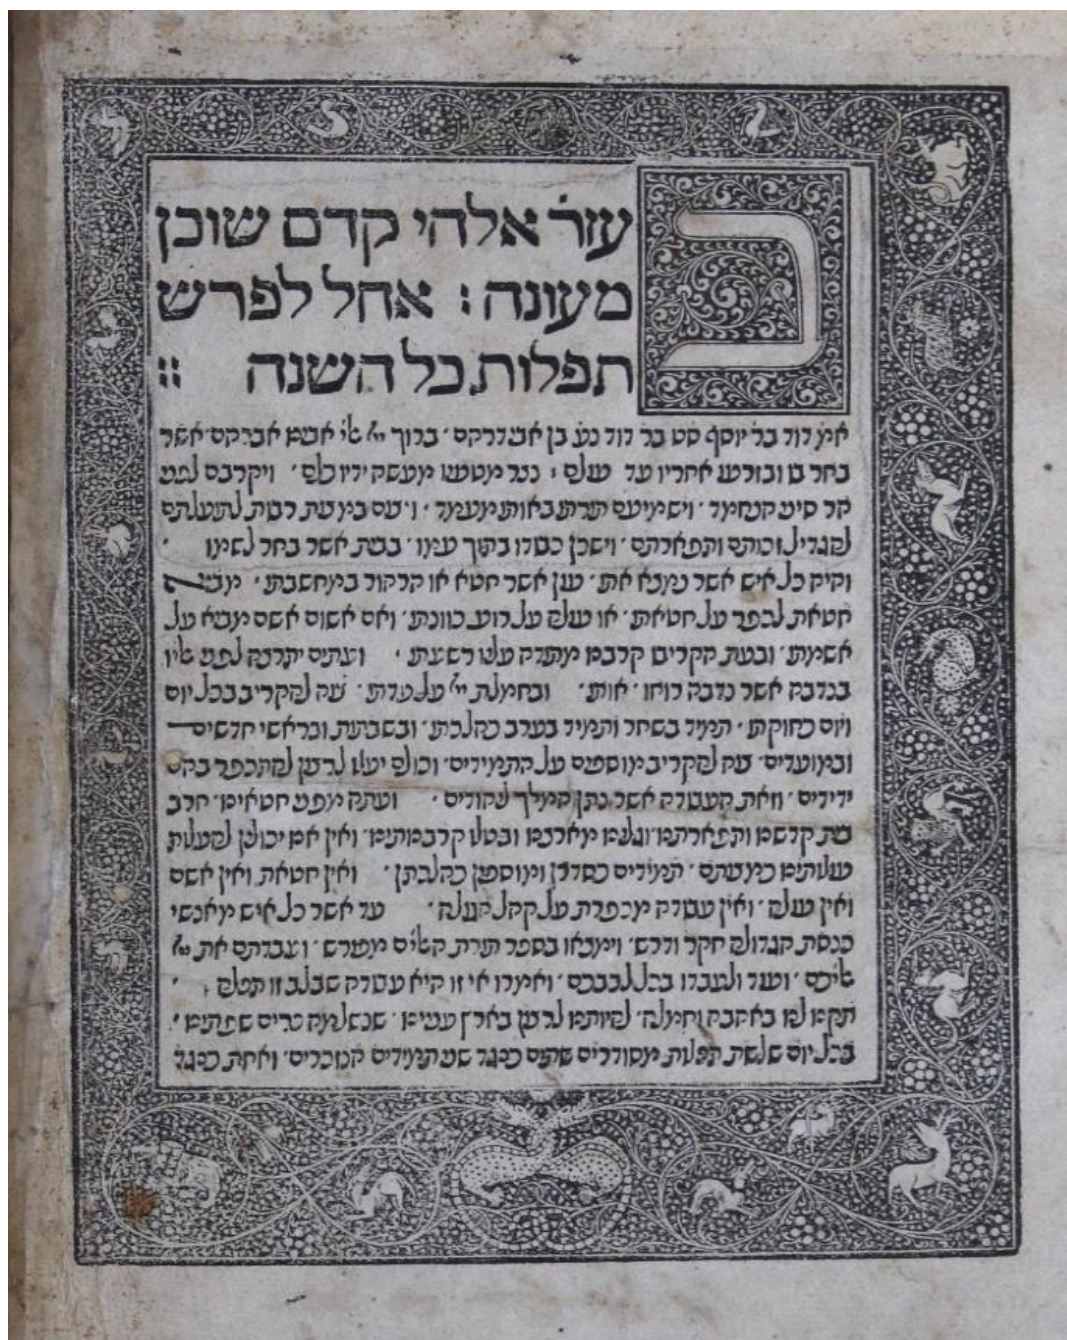 ב עזר אלהי קדם שוכן
מעונה : אחל לפרש
תפלות כל השנה :
אמר דוד בר יוסף סט בר דוד נע בן אבודרהם ׳ ברוך יי' אלהי אבינו אברהם ׳ אשר
בחר בו ובזרעו אחריו עד עולם : מעשה ידיו כלם ׳ ויקרבם לפני
הר סיני הנחמד ׳ וישמיעם תורתו באותו מעמד ׳ רבות להעלתם
להגדיל זכותם ותפארתם ׳ וישכן כבודו בתוך עמו ׳ בבית אשר בחר לשמו ׳
והיה כל איש אשר נמצא אתו ׳ עון אשר חטא או הרהור במחשבתו ׳ מביא
חטאת לכפר על חטאתו ׳ או עולה על רוע כוונתו ׳ ואם אשום אשם מביא על
אשמתו ׳ ובעת הקרים קרבנו מתודה עליו רשעתו ׳ ועתים יתנדב לפני אליו
בנדבה אשר נדבה רוחו ׳ אותו ׳ ובחמלת יי' על עדתו ׳ צוה להקריב בכל יום
ויום כחוקתו ׳ תמיד בשחר ותמיד בערב כהלכתו ׳ ובשבתות ובראשי חדשים
ובמועדים ׳ צוה להקריב מוספים על התמידים ׳ וכולם יעלו לרצון להתכפר בהם
ידידים ׳ וזאת העבודה אשר נתן המלך ליהודים ׳ ועתה מפני חטאינו ׳ חרב
בית קדשנו ותפארתנו ׳ וגלינו מארצנו ובטלו קרבנותינו ׳ ואין אנו יכולין להעלות
עולותינו כמצותם ׳ תמידים כסדרן ומוספין כהלכתן ׳ ואין חטאת ואין אשם
ואין עולה ׳ ואין עבודה מכפרת על קהל הגולה ׳ עד אשר כל איש מאנשי
כנסת הגדולה חקר ודרש ׳ וימצאו בספר תורת האלים מפורש ׳ ועבדתם את יי'
אליכם ׳ ועוד ולעבדו בכל לבבכם ׳ ואמרו אי זו היא עבודה שבלב זו תפלה ׳
תקנו לנו באהבה וחמלה ׳ להיותנו לרצון בארץ עניינו ׳ שנשלמה פרים שפתינו ׳
בכל יום שלשת תפלות מסודרים שתים כנגד שני תמידים הנזכרים ׳ ואחת כנגד